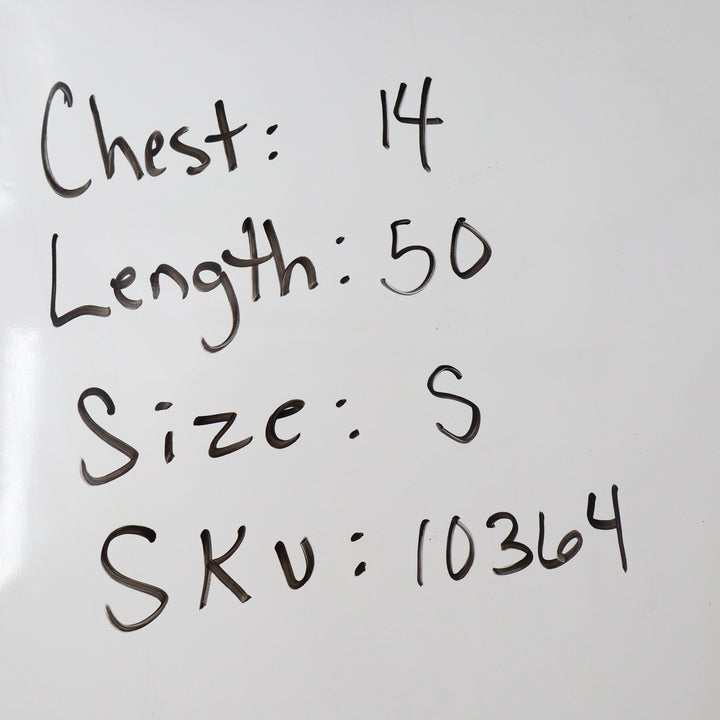 Chest: 14
Length: 50
Size: S
SKU: 10364